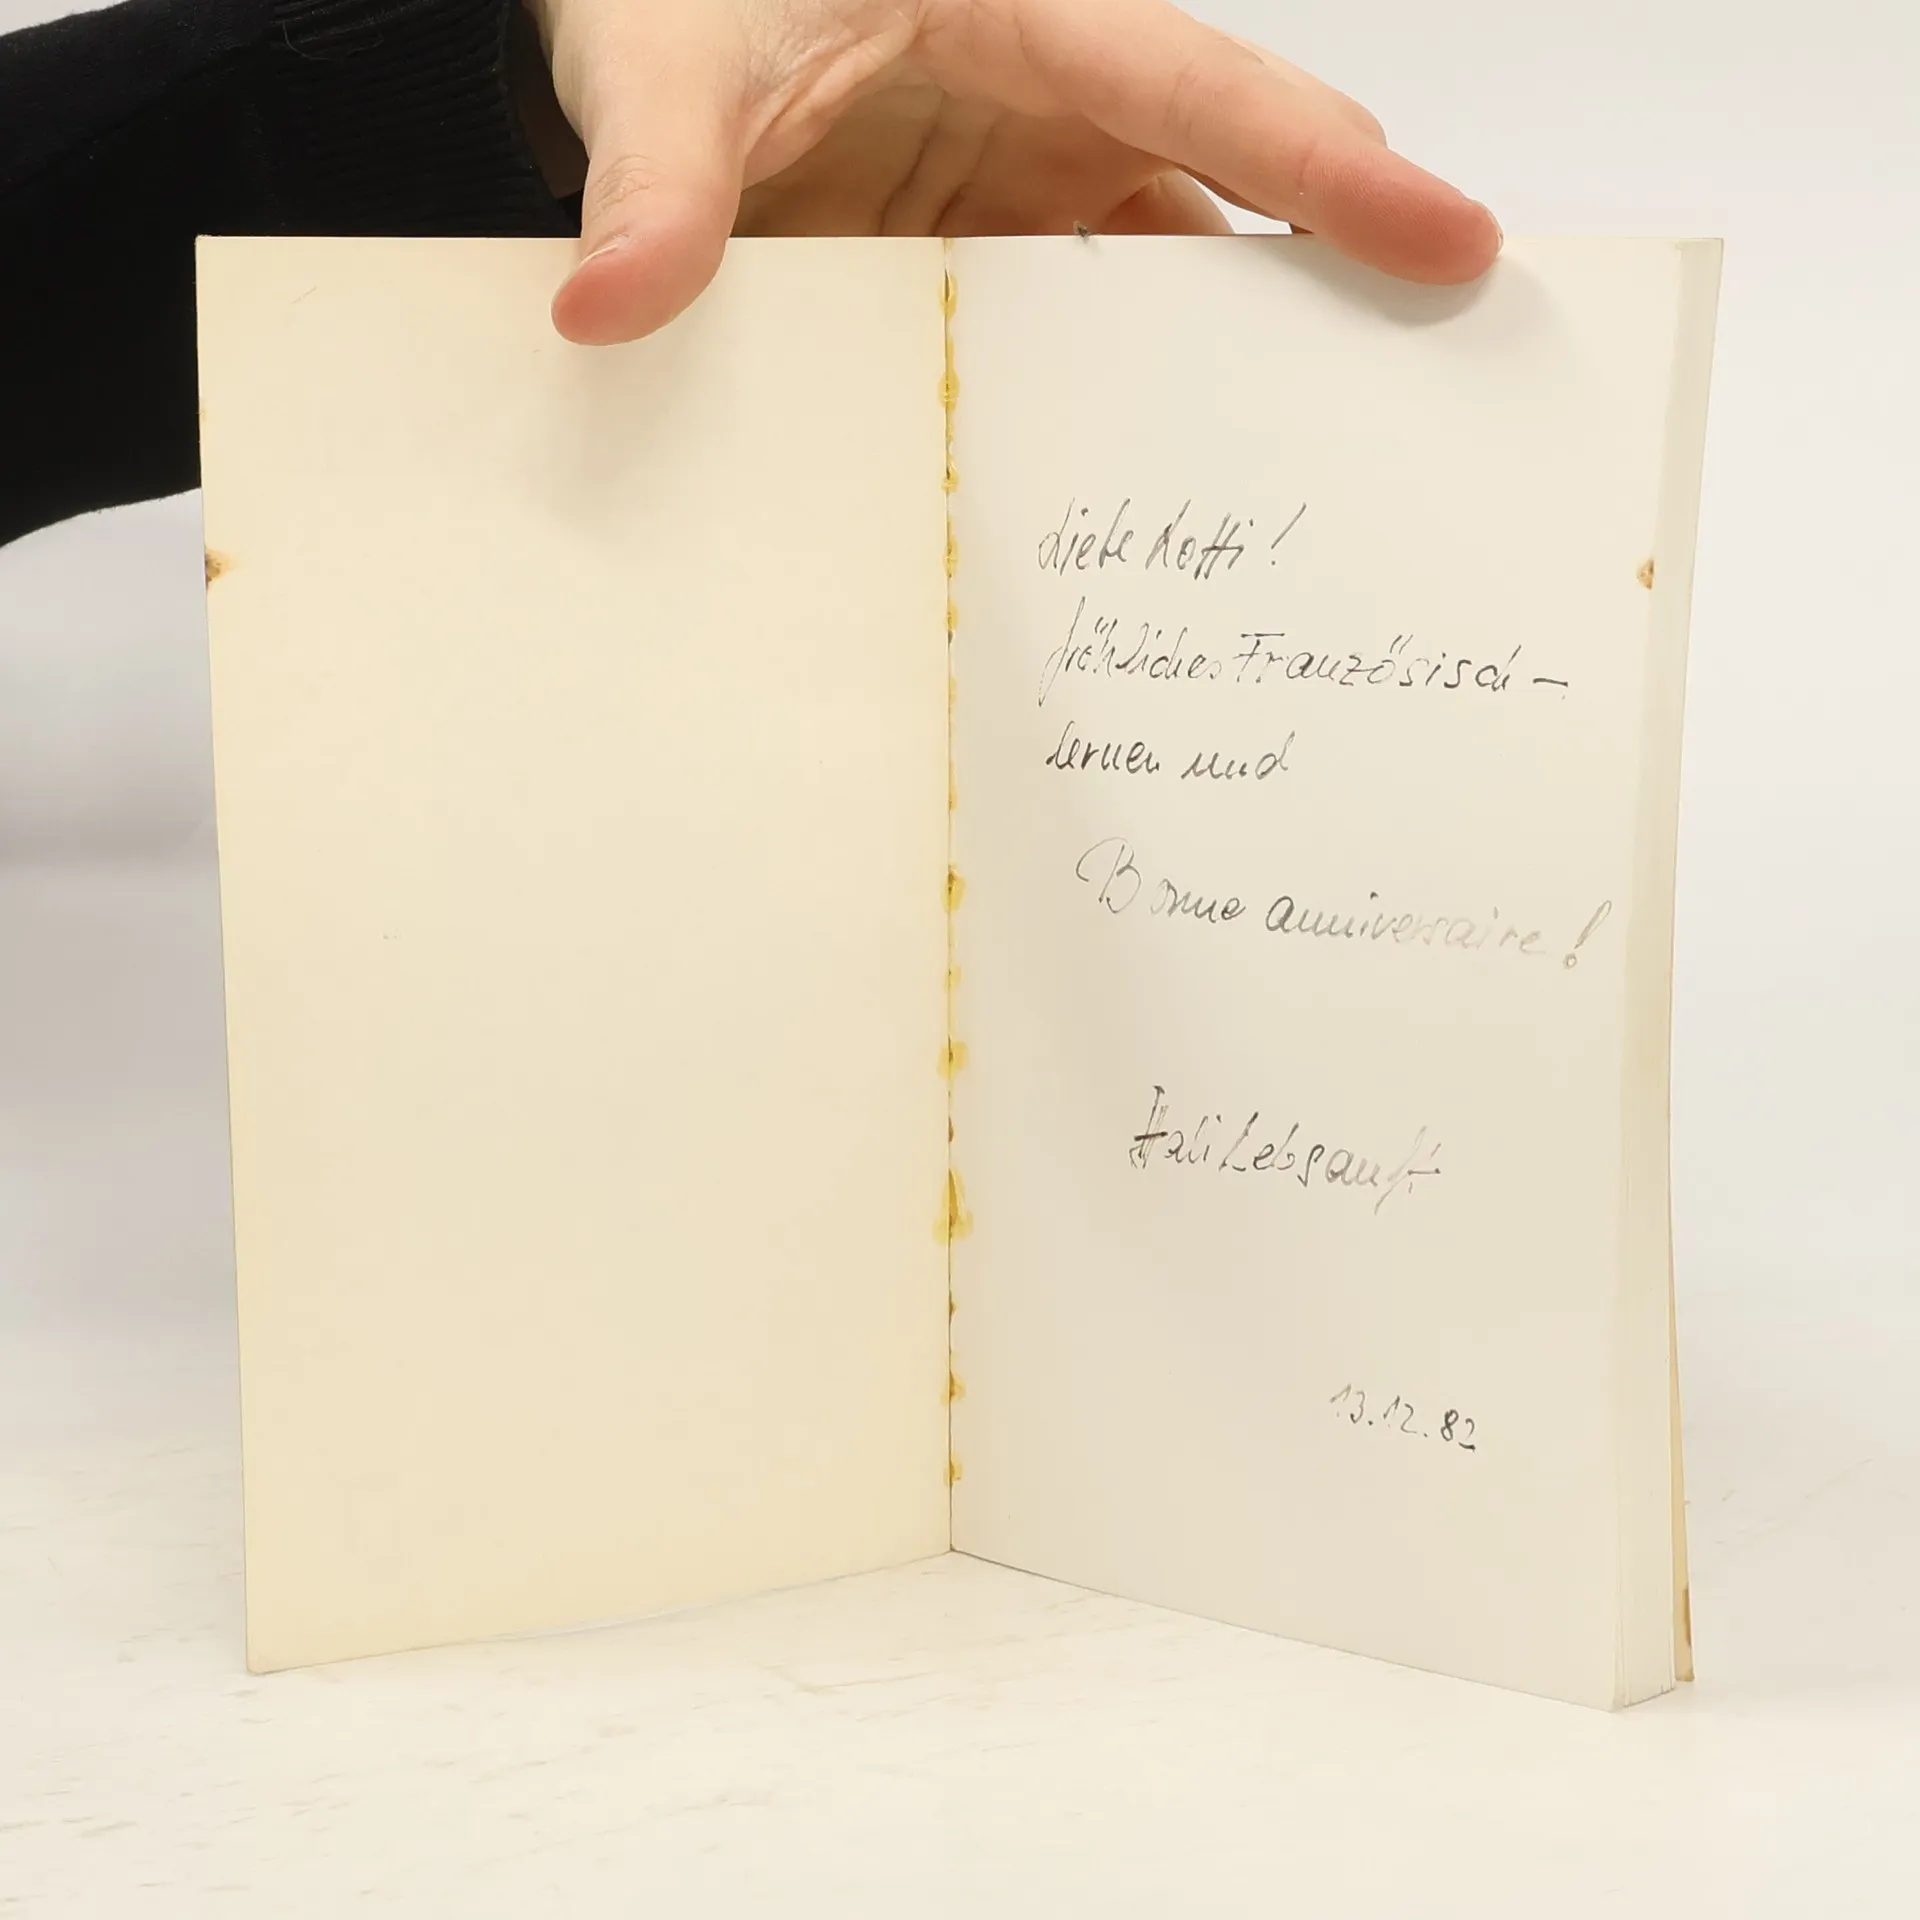 Liebe Lotti!
fröhliches Französisch-
lernen und
Bonne anniversaire!
13.12.82